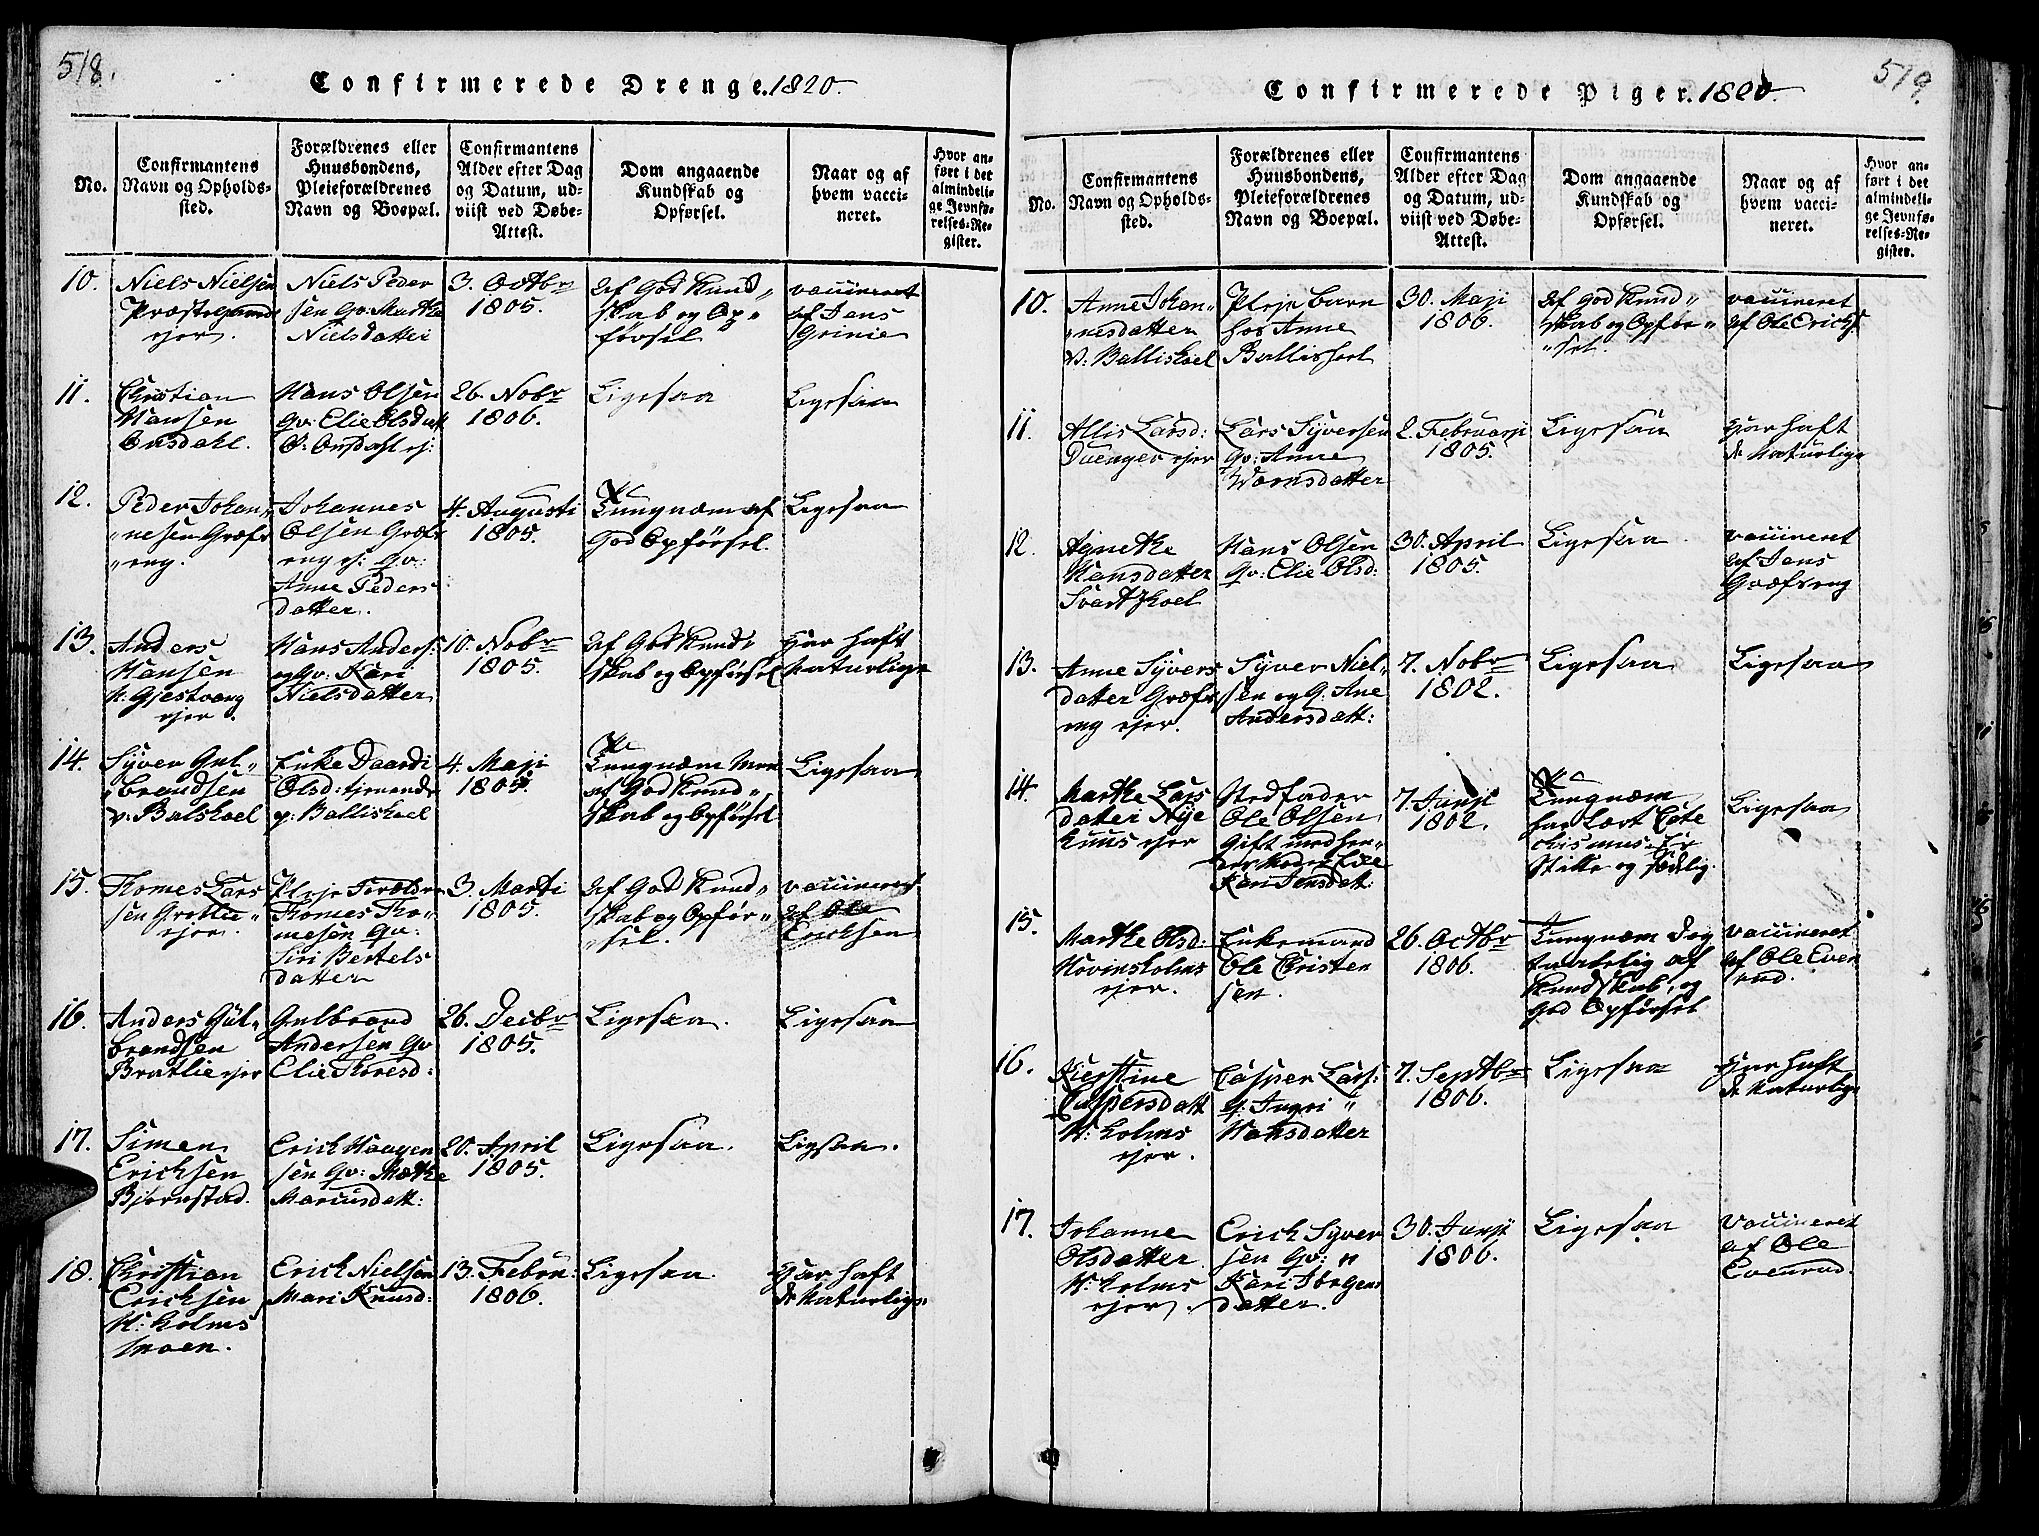 518.
Confirmerede Drenge. 1820.
No.
Confirmantens
Navn og Opholds-
sted.
Forældrenes eller
Huusbondens,
Pleieforældrenes
Navn og Boepæl.
Confirmantens
Alder efter Dag
og Datum, ud-
viist ved Døbe-
Attest.
Dom angaaende
Kundskab og
Opførsel.
Naar og af
hvem vacci-
neret.
Hvor an-
ført i det
almindeli-
ge Jevnfø-
relses-Re-
gister.
10.
Niels Nielsen
ejer.
Niels Peder
sen Gv: Marthe
Nielsdatter
3. Octbr
1805.
af God Kund"
skab og Op"
førsel
vaccineret
af Jens
Grinie
11.
Christian
Hansen
Onsdahl.
Hans Olsen
Gv: Elie Olsdat
O: Onsdahl ej:
26. Nobr
1806.
Ligesaa
Ligesaa
12.
Peder Johan"
"nesen Græfs
"eng.
Johannes
Olsen Græfs
eng ej: Gv:
Anne Peders
datter.
4. Augusti
1805.
Tungnæm af
God Opførsel.
Ligesaa
13.
Anders
Hansen
N: Gjestvang
ejer.
Hans Anders:
og Gv: Kari
Nielsdatter
10. Nobr
1805.
af God Kund"
skab og Opførsel
Har haft
Naturlige
14.
Syver Gul"
brandsen
v: Balskoel
Enke Daardi
Olsd: tjenende
v: Balliskoel
4. Maji
1805.
Tungnæm Men
af God Kund"
skab og Opførsel
Ligesaa
15.
Thomes Lars
sen Grøtlie"
ejer.
Pleje Forældre
Thomes Tho"
mesen Gv:
Siri Bertels
datter
3. Marti
1805.
af God Kund"
skab og Opfør"
"sel.
vaccineret
af Ole
Ericksen
16.
Anders Gul"
brandsen
Bratlie ejer
Gulbrand
Andersen Gv
Elie Thoresd:
26. Decbr
1805.
Ligesaa.
Ligesaa
17.
Simen
Ericksen
Bjørnstad.
Erick Haagen
sen Gv: Marthe
Marcusdatt:
20. April
1805.
Ligesaa.
Ligsaa.
18.
Christian
Ericksen
N: Holms
moen.
Erick Nielsen
Mari Knusd:
13. Febru:
1806.
Ligesaa.
Har haft
de Naturlige
519.
Confirmerede Piger. 1820.
No.
Confirmantens
Navn og Opholds-
sted.
Forældrenes eller
Huusbondens,
Pleieforældrenes
Navn og Boepæl.
Confirmantens
Alder efter Dag
og Datum, ud-
viist ved Døbe-
Attest.
Dom angaaende
Kundskab og
Opførsel.
Naar og af
hvem vacci-
neret.
Hvor an-
ført i det
almindeli-
ge Jevnfø-
relses-Re-
gister.
10.
Anne Johan"
nesdatter
v: Balliskoel
Pleje barn
hos Anne
30. Maji
1806.
af God Kund"
skab og Opfør"
"sel.
vaccineret
af Ole Ericks
11.
Allis Larsd:
Duenger ejer
Lars Syversen
Gv: Anne
datter
2. Februarji
1805.
Ligesaa
Har haft
de Naturlige
12.
Agnethe
Hansdatter
Svartskoel
Hans Olsen
Gv: Elie Olsd:
30. April
1805.
Ligesaa.
vaccineret
af Jens
Græfseng
13.
Anne Syvers
datter Græfs
eng ejer.
Syver Niel"
sen og G: Ane
Andersdatt:
7. Nobr
1802.
Ligesaa
Ligesaa
14.
Marthe Lars
datter Nye
huus ejer
Stedfader
Ole Olsen
Gift med hen"
des Moder
Kari Jensdatt:
7. Junji
1802.
Tungnæm
har Lært Cate
chismus. Er
Stille og sædelig.
Ligesaa
15.
Marthe Olsd:
Hovinsholms
ejer.
Enkemand
Ole Christen
sen.
26. Octbr
1806.
Tungnæm Dog
taalelig af
Kundskab, og
God Opførsel
vaccineret
af Ole Even
rud.
16.
Kierstine
Caspersdatt
H: holms
ejer.
Casper Lars:
ej: Ingri "
Hansdatter
7. Septbr
1806.
Ligesaa
Har haft
de Naturlige
17.
Johanne
Olsdatter
H: holms
ejer.
Erick Syver
sen Gv: "
Kari Ibrgens
datter.
30. Junji
1806.
Ligesaa
vaccineret
af Ole
Evenrud.